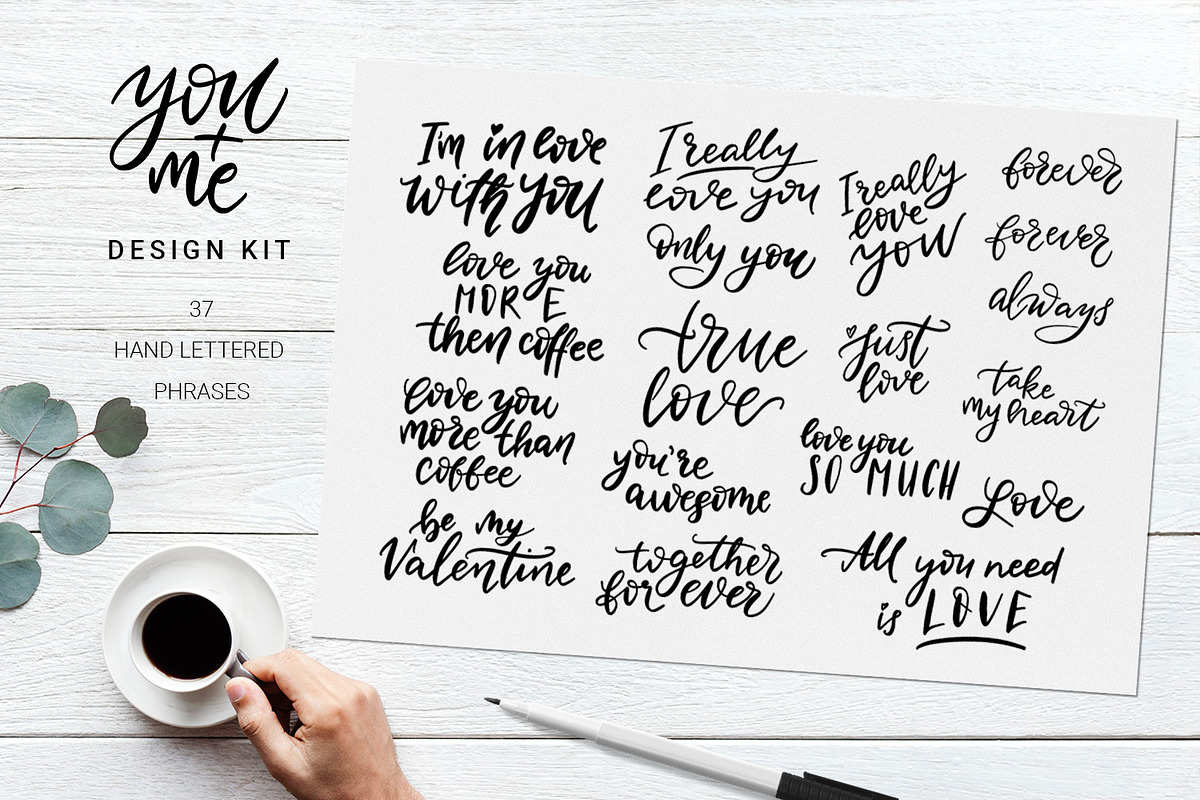 you
+
me
DESIGN KIT
37
HAND LETTERED
PHRASES
I'm in love
with you
love you
MORE
then coffee
love you
more than
coffee
be my
Valentine
I really
love you
only you
true
love
you're
awesome
together
forever
I really
love
you
just
love
love you
SO MUCH
All you need
is LOVE
forever
forever
always
take
my heart
Love